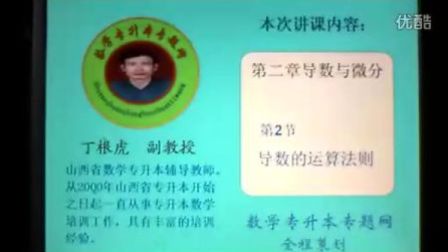 优酷
本次讲课内容:
数学专升本专教师
第二章导数与微分
第2节
导数的运算法则
丁根虎 副教授
山西省数学专升本辅导教师。
从2000年山西省专升本开始
之日起一直从事专升本数学
培训工作，具有丰富的培训
经验。
数学专升本专题网
全程策划